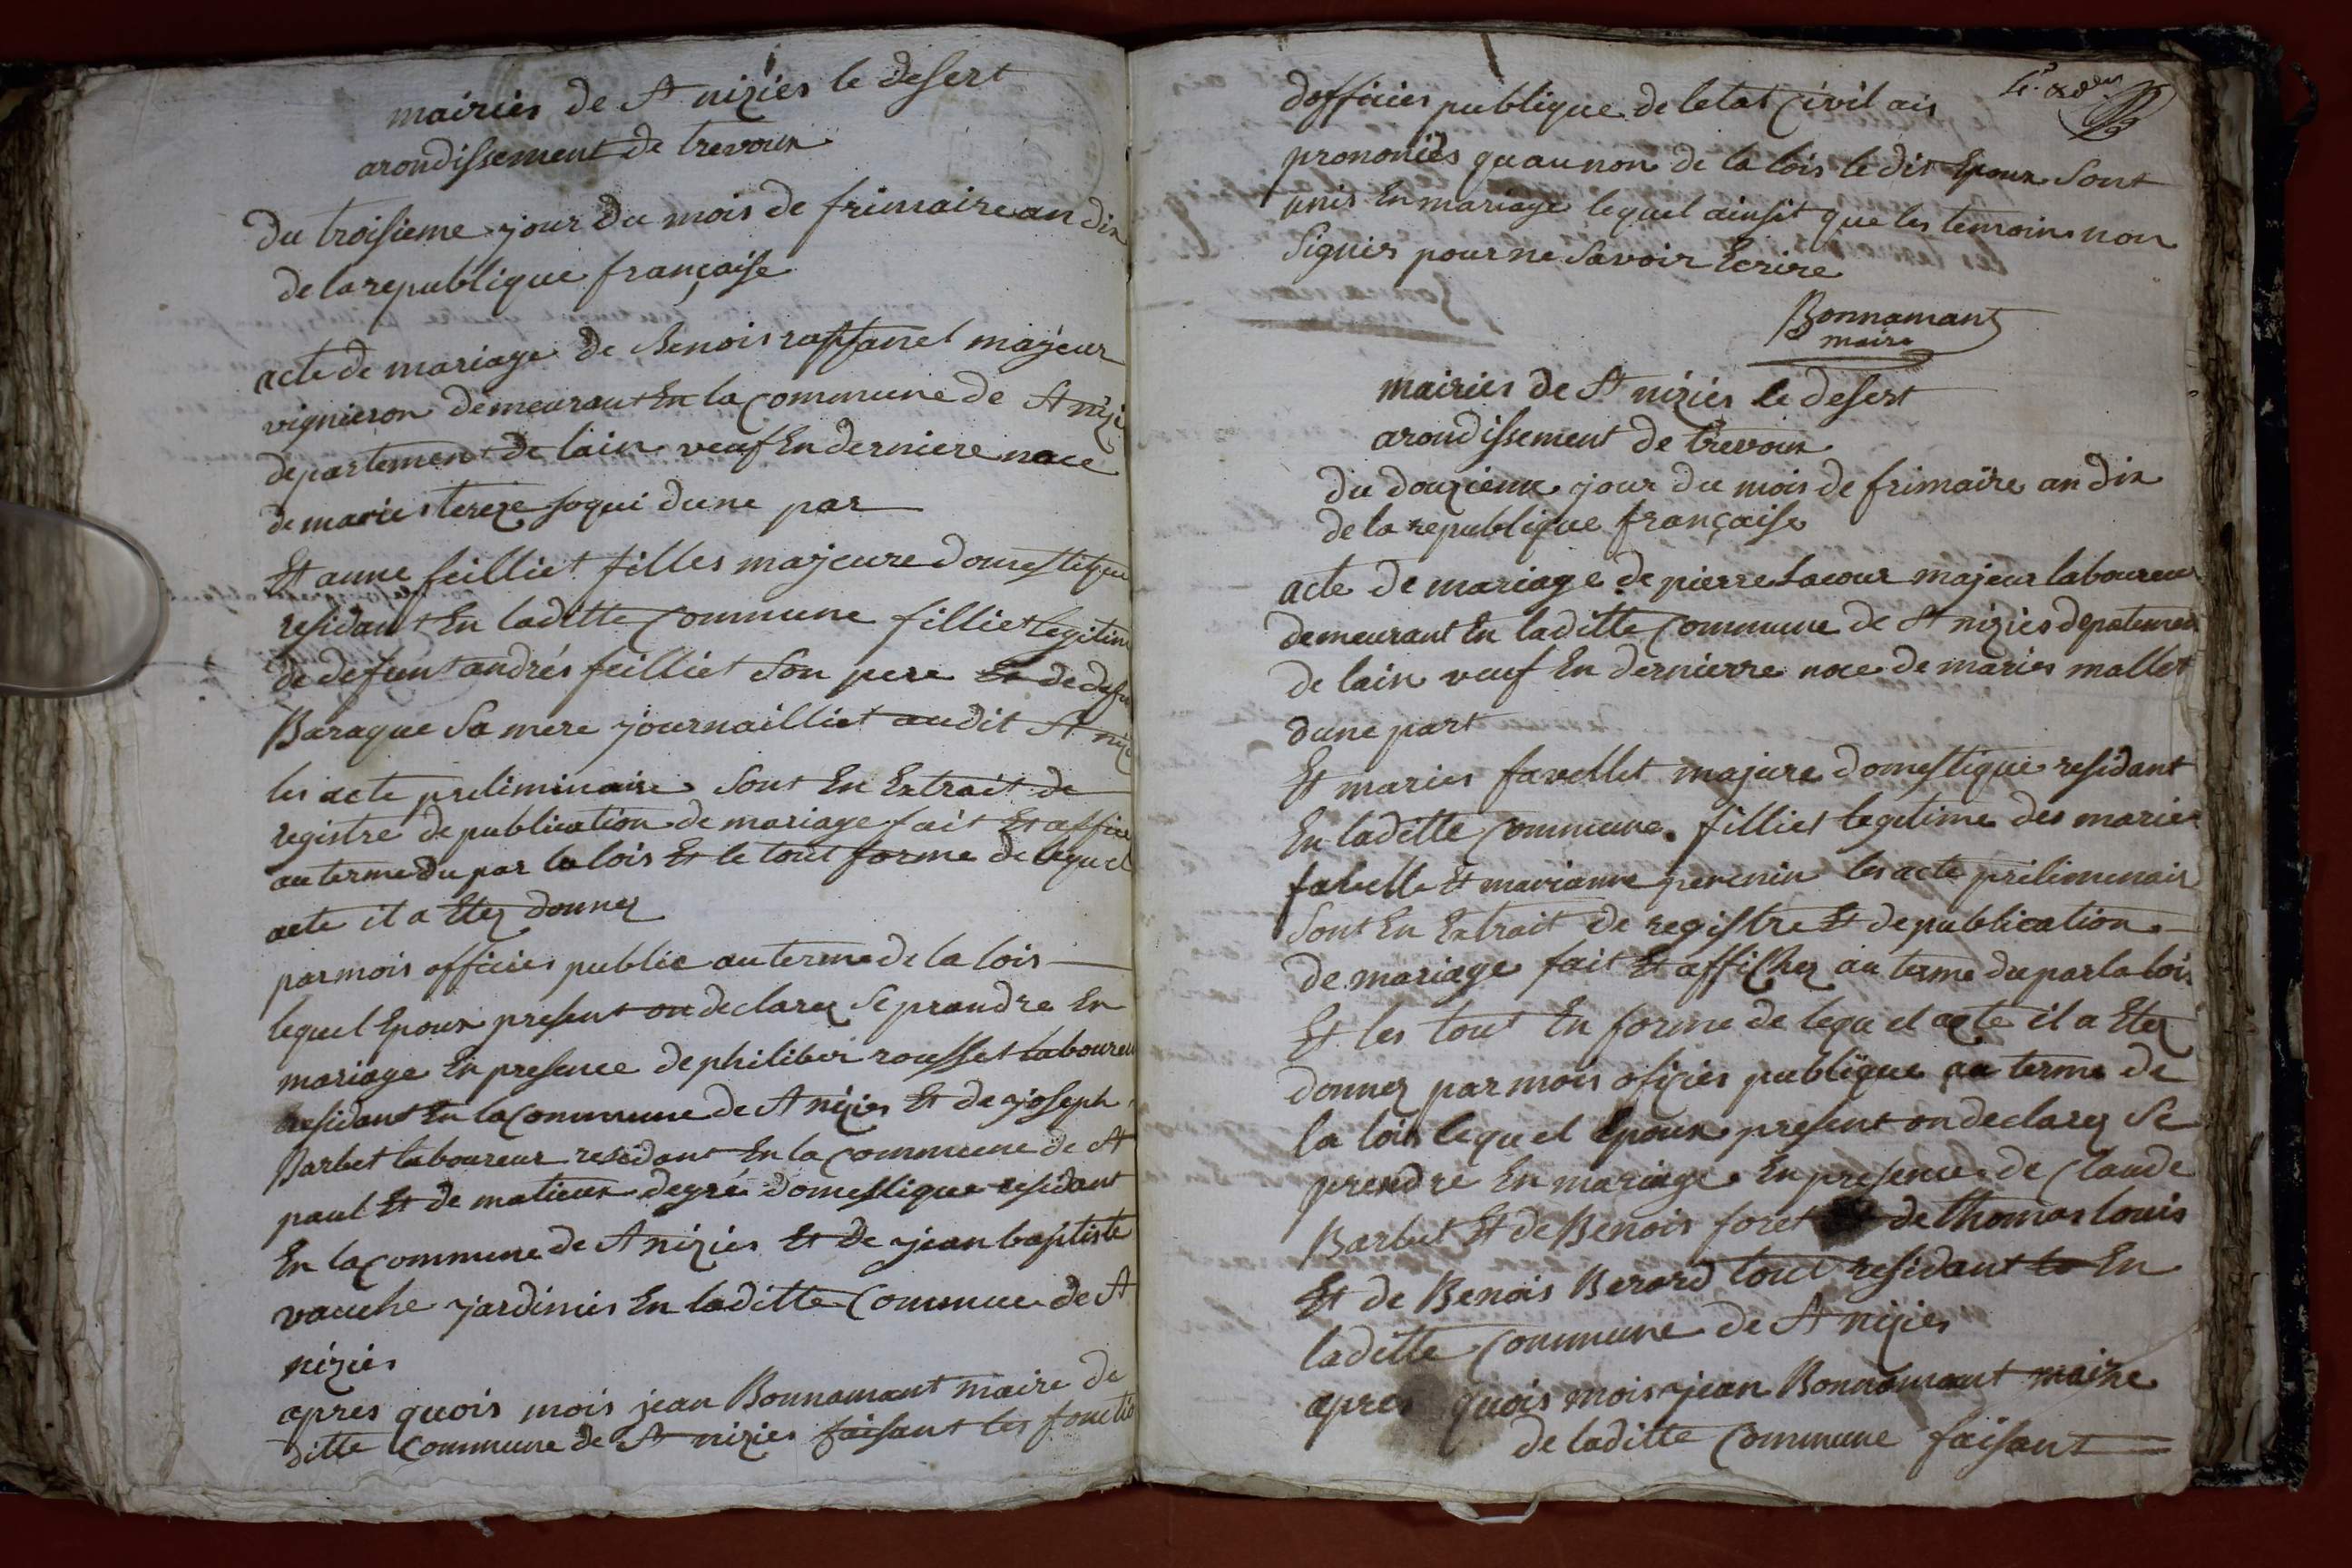 mairies de St niziés le desert
arondissement de trevoux
du troisieme jour du mois de frimaire an dix
de la republique française
acte de mariage de Benois raffanel majeur
vignieron demeurant En la Commune de St nizie
departement de lain veuf En derniere noce
de marie tereze soqui dune par
Et anne feilliet filles majeure domestique
residant En laditte Commune filliet legitim
de defeunt andrés feilliet Son pere Et de defu
Baraque Sa mere journailliet audit St niz
les acte preliminaire Sont En Extrait de
registre de publication de mariage fait Et affice
au terme du par la lois Et le tout forme de lequel
acte il a Etez donnez
par mois officies public au terme de la lois
lequel Epoux present on declarez Se prandre En
mariage En presence de philiber rousset laboureu
residant En la Commune de St nizies Et de joseph
Barbet laboureur residant En la Commune de St
paul Et de matieux degré domestique residant
En la Commune de St nizies Et de jean baptiste
vauche jardinies En laditte Commune de St
niziés
apres quois mois jean Bonnamant maire de
ditte Commune de St nizies faisant les foncti
dofficies publique de letat Civil ais
prononcés quau non de la lois le dit Epoux Sont
unis En mariage lequel ainsit que les temoins non
Signés pour ne Savoir Ecrire
Bonnamant
maire
mairies de St niziés le desert
arondissement de trevoux
du douzieme jour du mois de frimaire an dix
de la republique française
acte de mariage de pierre Lacour majeur laboureu
demeurant En laditte Commune de St nizies depatemen
de lain veuf En dernierre noce de maries mallet
dune part
Et maries favellet majure domestique residant
En laditte Commune. filliet legitime des marie
favelle Et marianne les acte preliminair
Sont En Extrait de registre Et de publication
de mariage fait Et affichez au terme du par la lois
Et les tout En forme de lequel acte il a Etez
donnez par mois oficies publique au terme de
la lois lequel Epoux present on declarez Se
prendre En mariage En presence de Claude
Barbet Et de Benois foret de thomas louis
Et de Benois Berard tout residant En
laditte Commune de St nizies
apres quois mois jean Bonnamant maire
de laditte Commune faisant